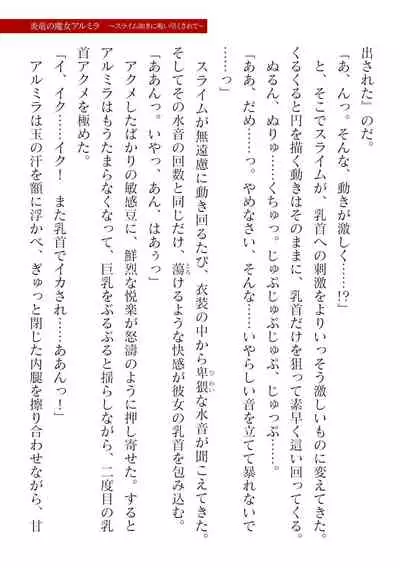 炎竜の魔女アルミラ　～スライム如きに吸い尽くされて～
出された』のだ。
「あ、んっ。そんな、動きが激しく……!?」
と、そこでスライムが、乳首への刺激をよりいっそう激しいものに変えてきた。
くるくると円を描く動きはそのままに、乳首だけを狙って素早く這い回ってくる。
ぬるん、ぬりゅ……くちゅっ。じゅぷじゅぷじゅぷ、じゅっぷ……。
「ああ、だめ……っ。やめなさい、そんな……いやらしい音を立てて暴れないで
……っ」
スライムが無遠慮に動き回るたび、衣装の中から卑猥な水音が聞こえてきた。
そしてその水音の回数と同じだけ、蕩けるような快感が彼女の乳首を包み込む。
「ああんっ。いやっ、あん、はあぅっ」
アクメしたばかりの敏感豆に、鮮烈な悦楽が怒濤のように押し寄せた。すると
アルミラはもうたまらなくなって、巨乳をぶるぶると揺らしながら、二度目の乳
首アクメを極めた。
「イ、イク……イク！　また乳首でイカされ……ああんっ！」
アルミラは玉の汗を額に浮かべ、ぎゅっと閉じた内腿を擦り合わせながら、甘